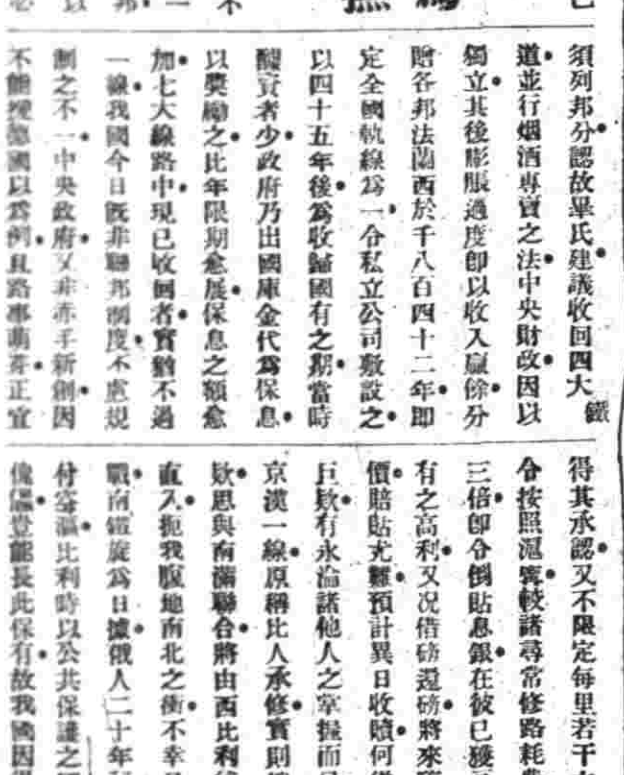 須列邦分認故畢氏建議收回四大鐵
道並行烟酒專賣之法中央財政因以
獨立其後膨脹過度卽以收入贏餘分
贈各邦法蘭西於千八百四十二年卽
定全國軌線爲一合私立公司敷設之
以四十五年後爲收歸國有之期當時
醵資者少政府乃出國庫金代爲保息
以奬勵之比年限期愈展保息之額愈
加七大線路中現已收回者實猶不過
一線我國今日旣非聯邦制度不慮規
制之不一中央政府又非赤手新創因
不能援德國以爲例且路事萌芽正宜
得其承認又不限定每里若干
令按照滬寗較諸尋常修路耗
三倍卽令倒貼息銀在彼已獲
有之高利又况借磅還磅將來
價賠貼尤難預計異日收贖何
巨欵有永淪諸他人之掌握而
京漢一線原稱比人承修實則
欵思與南滿聯合將由西比利
直入扼我腹地南北之衝不幸
戰南鐵旋爲日據俄人二十年
付比利時以公共保護之
豈能長此保有故我國因